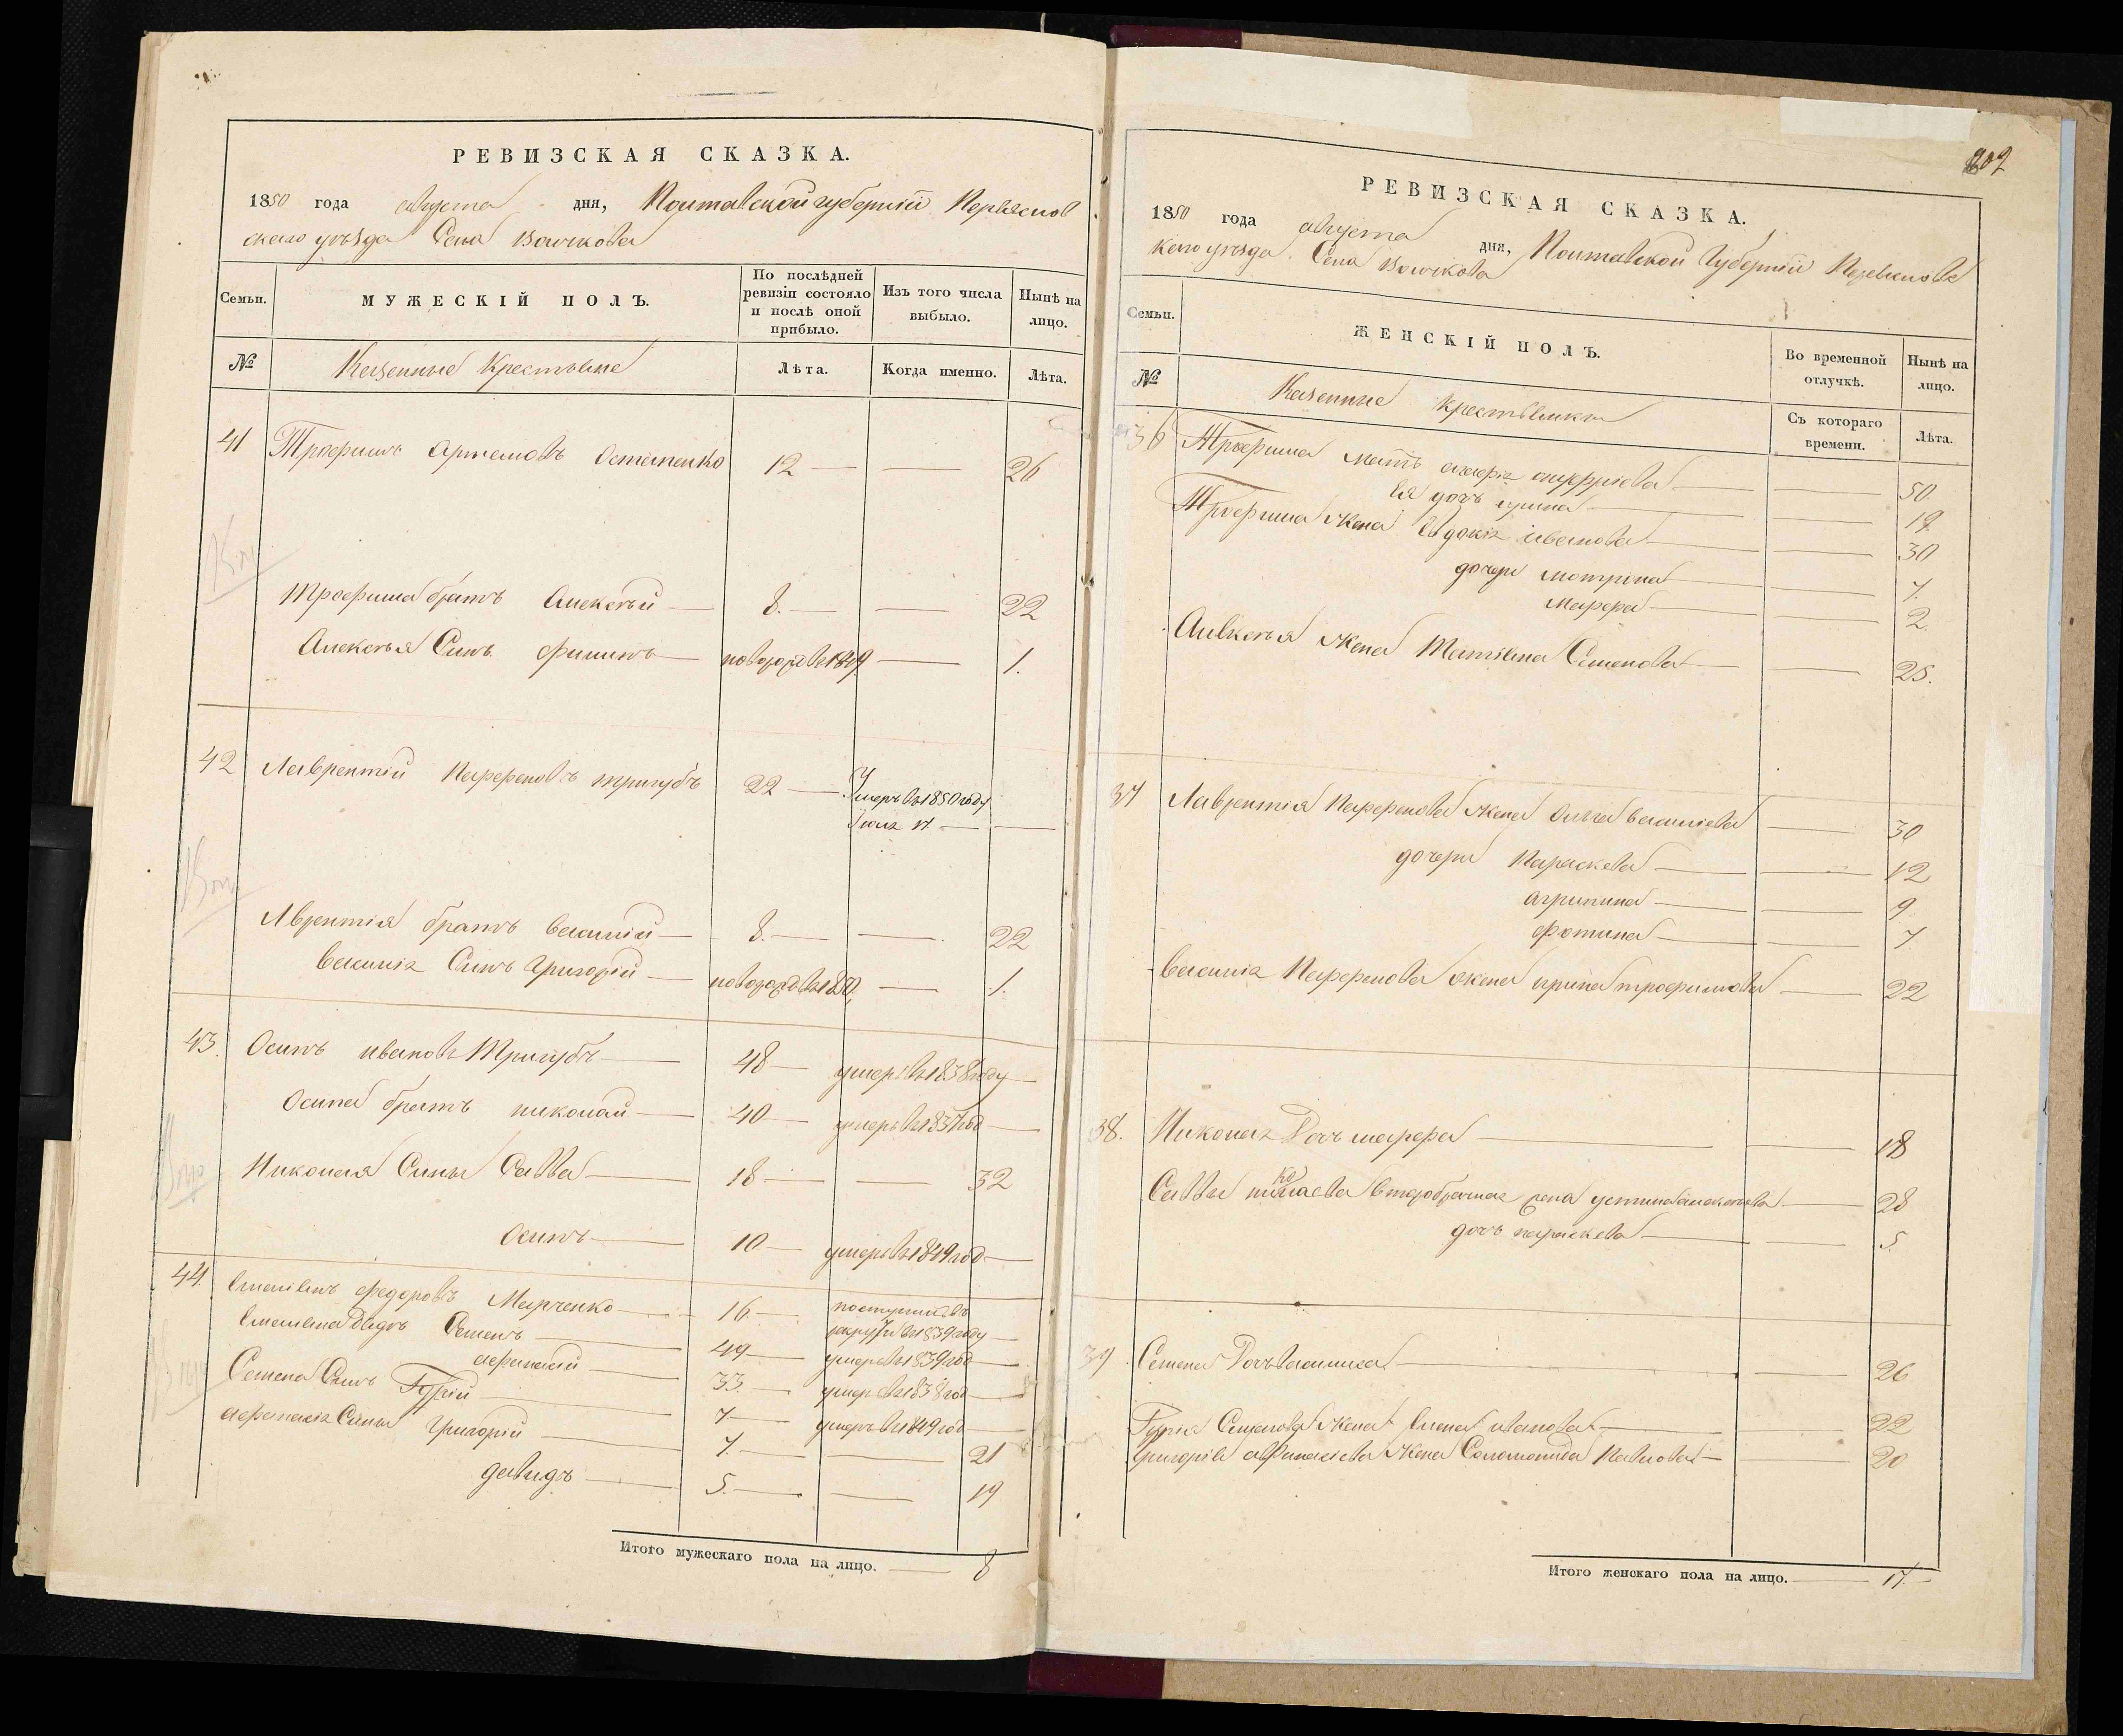 РЕВИЗСКАЯ СКАЗКА.
1850 года августа дня, Полтавской губерніи Переяслов
скаго уѣзда Села Войткова
Семьи.
МУЖЕСКІЙ ПОЛЪ.
По послѣдней ревизіи состояло и послѣ оной прибыло.
Изъ того числа выбыло.
Нынѣ на лицо.
№
Казенные Крестьяне
Лѣта.
Когда именно.
Лѣта.
41 Трофимъ Артемовъ Остапенко 12 — — 26
Трофима братъ Алексѣй — 8. — — 22
Алексѣя Сынъ филипъ — новорожд въ 1849 — 1.
42 Лаврентій Парфеновъ тригубъ 22 — Умеръ въ 1850 году
— —
Лврентія братъ василій — 8. — — 22
василія Сынъ Григорій — новорожд въ 1850. — 1.
43. Осипъ ивановъ Тригубъ — 48 — умеръ въ 1838 году —
Осипа братъ николай — 40 — умеръ въ 1837 год —
Николая Сыны Савва — 18 — — 32
Осипъ — 10 — умеръ въ 1849 год —
44. федоровъ Марченко — 16 — поступилъ въ
рекруты въ 1839 году —
дядя Семенъ — 49 — умеръ въ 1839 год —
афанасій — 33. — умеръ въ 1838 год —
Семена Сынъ Гурій — 7 — умеръ въ 1849 год —
афанасія Сыны Григорій — 7. — — 21
давидъ — 5. — — 19
Итого мужескаго пола на лицо. — 8
202
РЕВИЗСКАЯ СКАЗКА.
1850 года августа дня, Полтавской Губерніи Переяславс
каго уѣзда. Села Войткова
Семьи.
ЖЕНСКІЙ ПОЛЪ.
Во временной отлучкѣ.
Нынѣ на лицо.
№
Казенные крестьянки
Съ котораго времени.
Лѣта.
36 Трофима мать агафія — — 50.
Ея дочь ирина — — 19.
Трофима Жена Евдокія иванова — — 30
дочери мотрина — — 7.
Марфа — — 2.
Алексѣя Жена Татіяна Семенова — — 25.
37 Лаврентія Парфенова Жена Анна василіева — 30
дочери Параскева — — 12
агрипина — — 9
фотина — — 7
василія Парфенова жена ирина трофимова — 22
38. Николая Дочь марфа — — 18
Саввы николаева второбрачная жена устина алексѣева — 28
дочь параскева — — 5.
39 Семена Дочь василиса — — 26
Гурія Семенова Жена Елена иванова — — 22
Григорія афанасіева Жена Соломонида Павлова — — 20
Итого женскаго пола на лицо. — 17.